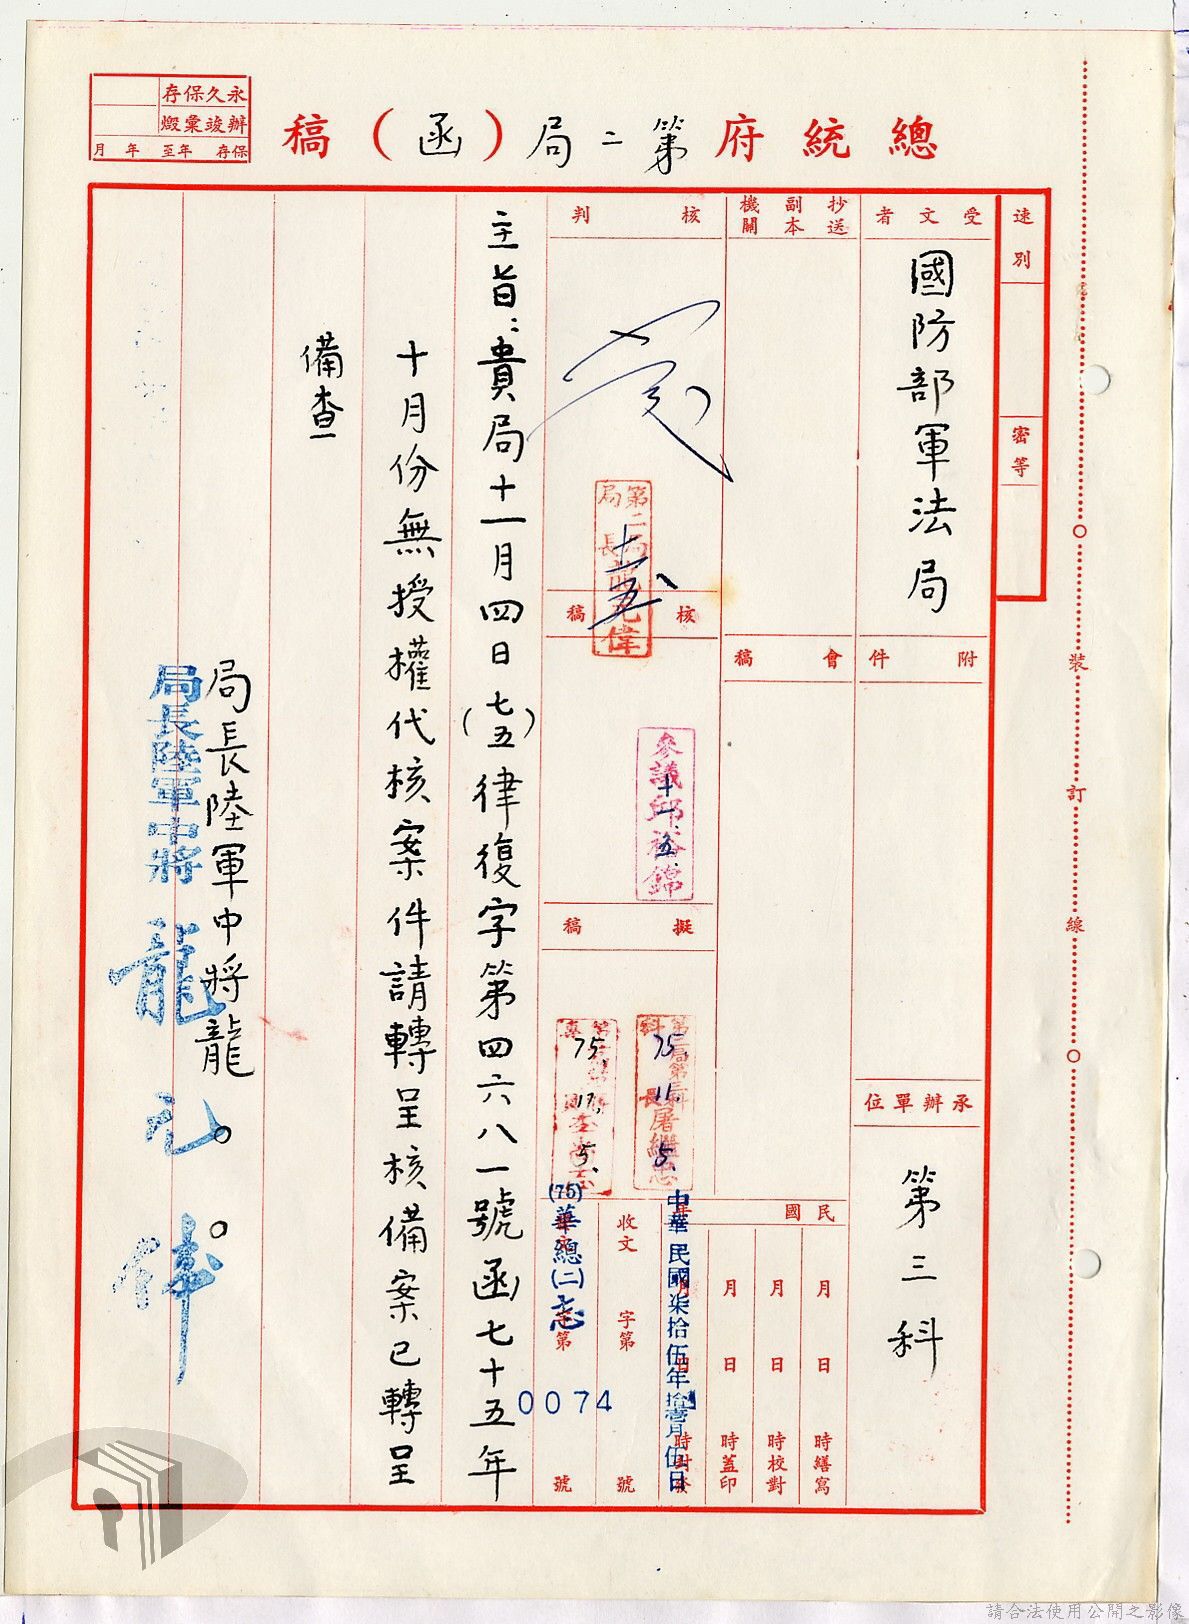 總統府第二局（函）稿
永久保存
辦竣彙燬
保存 年至 年 月
速別
密等
受文者
國防部軍法局
附件
承辦單位
第三科
抄送
副本
機關
會稿
民國
月 日 時繕寫
月 日 時校對
月 日 時蓋印
中華民國柒拾伍年拾壹月伍日
核判
第二局
局長
龍
偉
核稿
十一、五
參議邱裕錦
十一、五、
擬稿
第二局第三科
科長屠繼忠
75. 11. 5.
75. 11. 5.
收文 字第 號
(75)華總(二)忠字第 0074 號
主旨：貴局十一月四日(七五)律復字第四六八一號函七十五年
十月份無授權代核案件請轉呈核備案已轉呈
備查
局長陸軍中將龍○○
局長陸軍中將 龍
裝
訂
線
請合法使用公開之影像